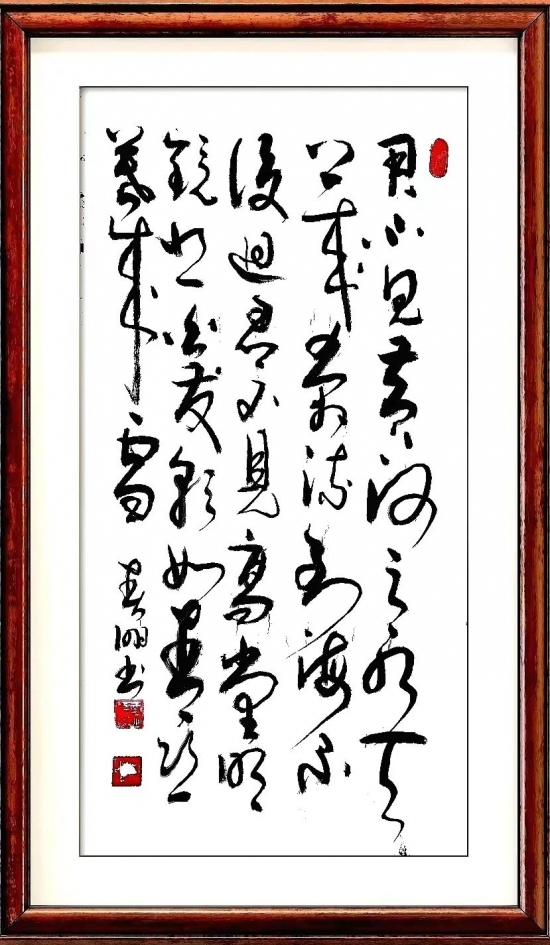 君不見黃河之水天
上來奔流到海不
復迴君不見高堂明
鏡悲白髮朝如青絲
暮成雪